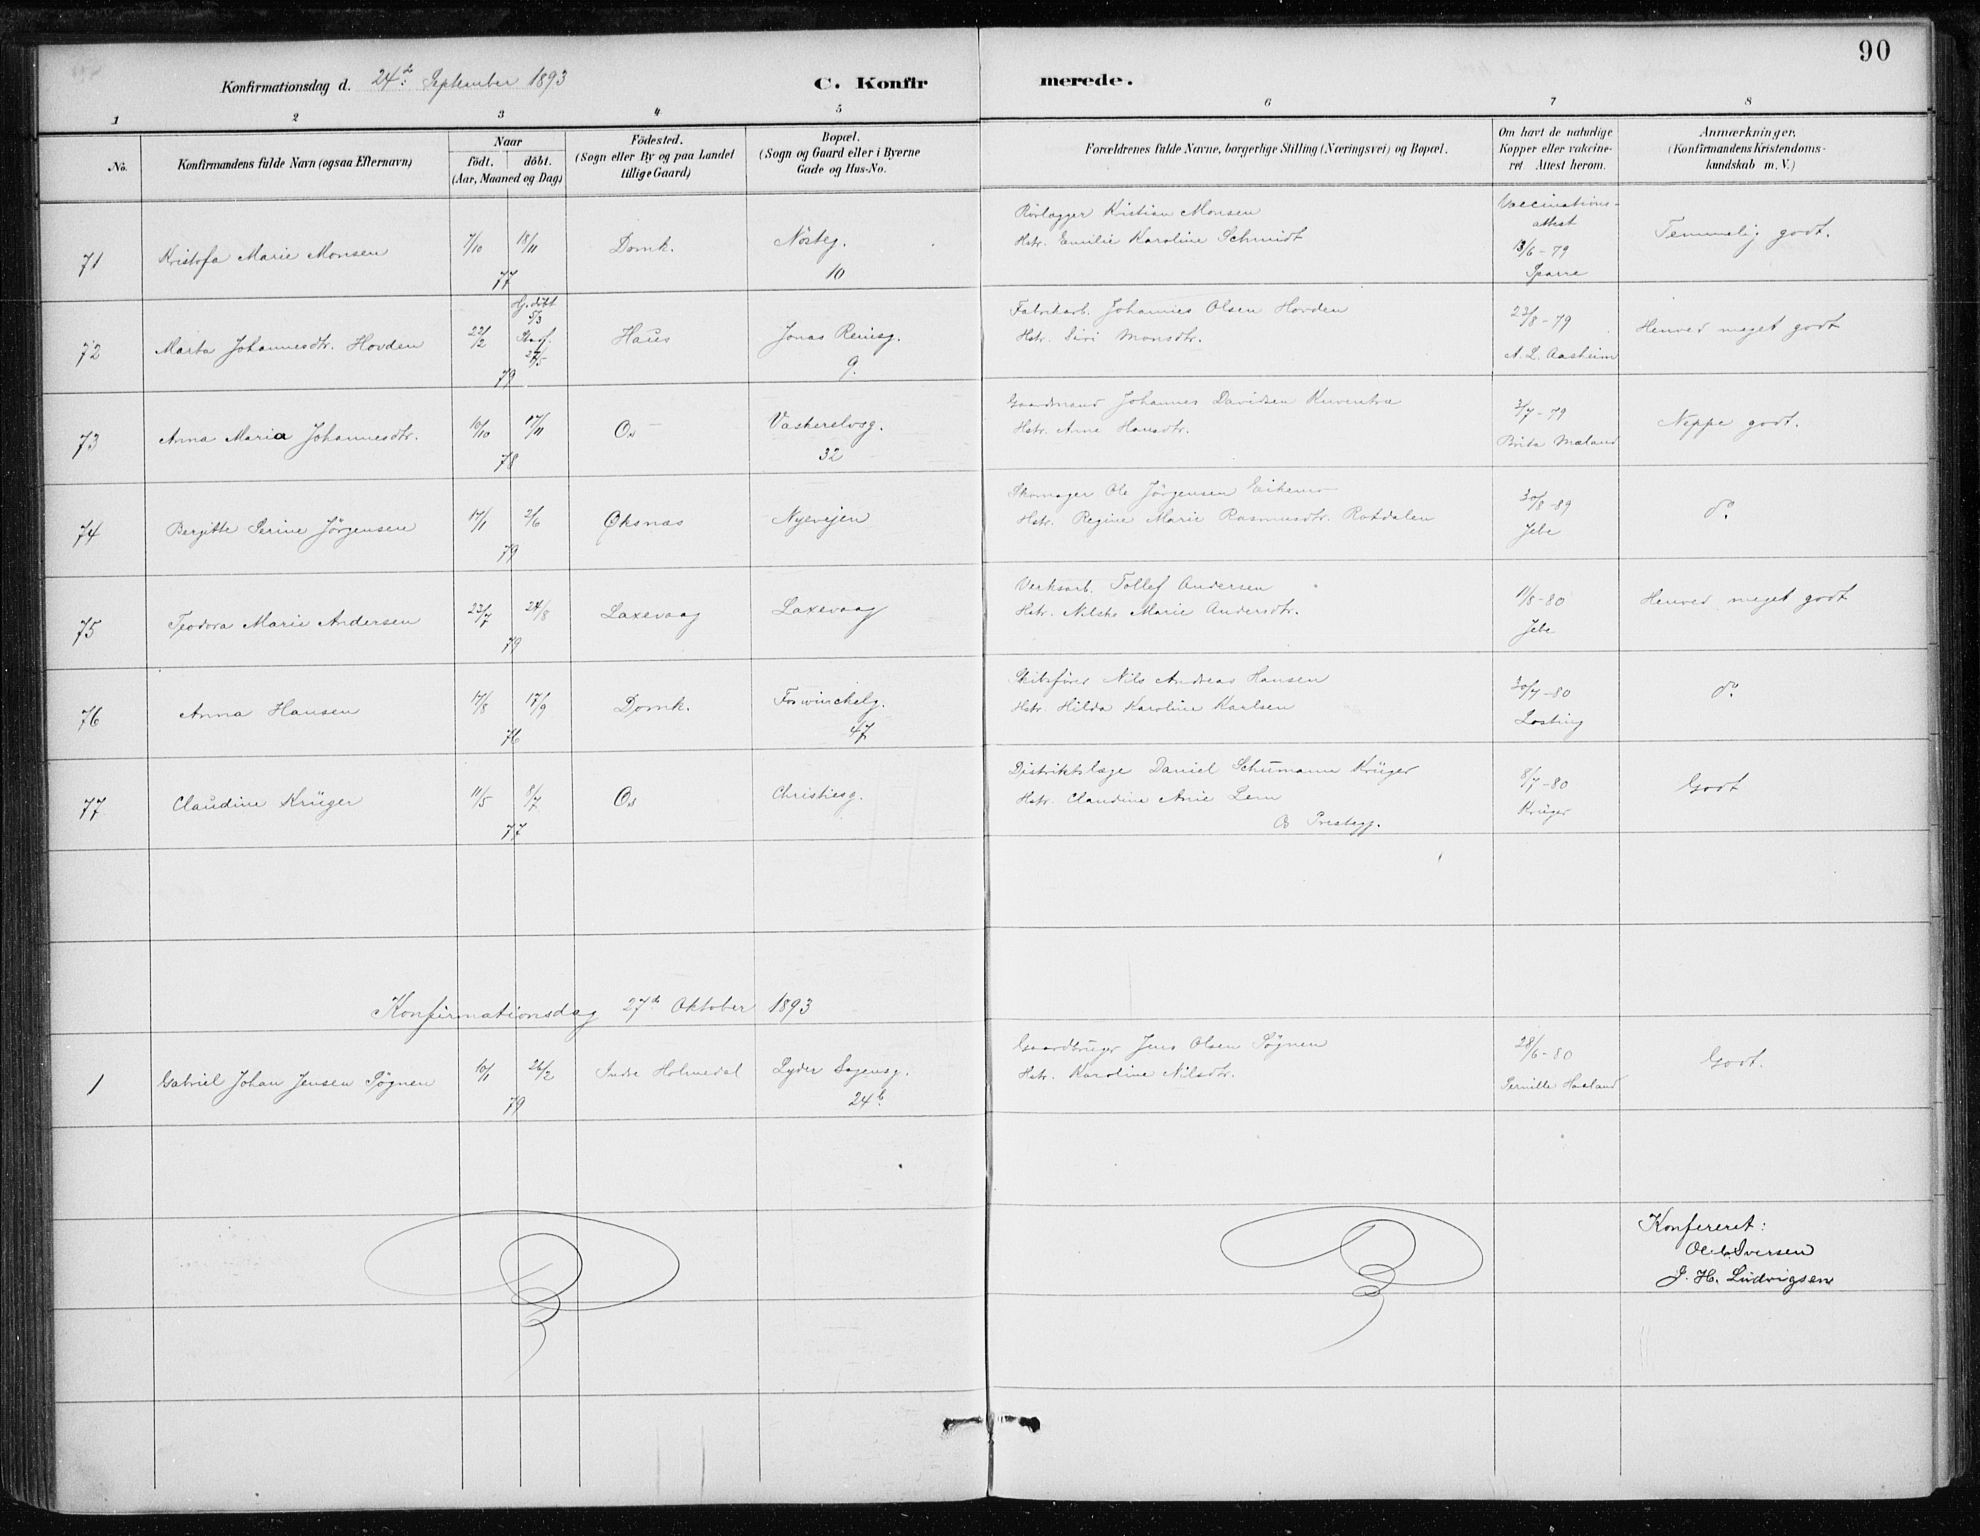 90
Konfirmationsdag d. 24de September 1893 C. Konfirmerede.
1 2 3 4 5 6 7 8
No. Konfirmandens fulde Navn (ogsaa Efternavn) Naar födt. döbt. (Aar, Maaned og Dag) Födested. (Sogn eller By og paa Landet tillige Gaard) Bopæl. (Sogn og Gaard eller i Byerne Gade og Hus-No. Forældrenes fulde Navne, borgerlige Stilling (Næringsvei) og Bopæl. Om havt de naturlige Kopper eller vakcineret Attest herom. Anmærkninger. (Konfirmandens Kristendomskundskab m. V.)
71 Kristofa Marie Monsen 7/10 18/11 77 Domk. Nösteg. 10
Rörlægger Kristian Monsen
Hstr. Emilie Karoline Schmidt
Vaccinations-attest 13/6-79 Sparre
Temmelig godt.
72 Marta Johannesdtr. Hovden 22/2 Hj. döbt 5/3 Stadf. 27/5 79 Haus Jonas Reinsg. 9.
Fabrikarb. Johannes Olsen Hovden
Hstr. Siri Monsdtr.
23/8-79 A. L. Aasheim
Henved meget godt
73 Anna Maria Johannesdtr. 10/10 17/11 78 Os Vaskerelvsg. 32
Gaardmand Johannes Davidsen Kuventræ
Hstr. Anna Hansdtr.
3/7-79 Brita Mæland
Neppe godt.
74 Bergitte Serine Jörgensen 17/1 2/6 79 Öksnæs Nyevejen
Skomager Ole Jörgensen Eikemo
Hstr. Regine Marie Rasmusdtr. Rotdalen
30/8-89 Jebe
do
75 Teodora Marie Andersen 23/7 24/8 79 Laxevaag Laxevaag
Verksarb. Tollef Andersen
Hstr. Nilske Marie Andersdtr.
11/8-80 Jebe
Henved meget godt
76 Anna Hansen 17/8 17/9 76 Domk. Forswinckelg. 47
Skibsförer Nils Andreas Hansen
Hstr. Hilda Karoline Karlsen
30/7-80 Losting
do
77 Claudine Krüger 11/5 8/7 77 Os Christiesg.
Distriktslæge Daniel Schumann Krüger
Hstr. Claudine Anie Lem
Os Prestegj.
8/7-80 Krüger
Godt
Konfirmationsdag 27de Oktober 1893
1 Gabriel Johan Jensen Tögnen 10/1 26/2 79 Indre Holmedal Lyder Sagensg. 24b.
Gaardbruger Jens Olsen Tögnen
Hstr. Karoline Nilsdtr.
28/6-80 Pernille Haaland
Godt.
Konfereret:
Ole Iversen
J. H. Ludvigsen